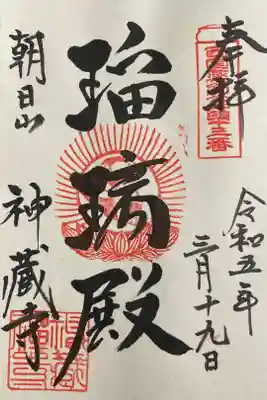 奉拝
令和五年
三月十九日
瑠璃殿
朝日山
神蔵寺